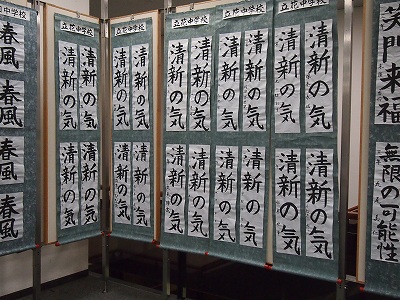 中学校
春風
春風
春風
春風
立花中学校
清新の気
清新の気
清新の気
清新の気
立花中学校
清新の気
清新の気
清新の気
清新の気
立花中学校
清新の気
清新の気
清新の気
清新の気
立花中学校
清新の気
清新の気
清新の気
清新の気
立花中学校
清新の気
清新の気
清新の気
清新の気
笑門来福
無限の可能性